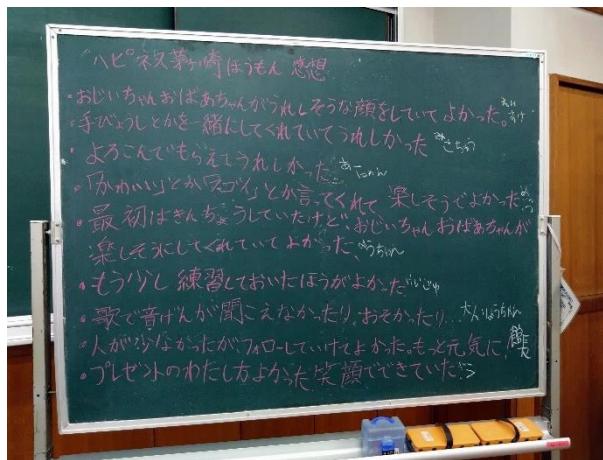 ハピネス茅ヶ崎ほうもん 感想
・おじいちゃんおばあちゃんがうれしそうな顔をしていてよかった。
・手びょうしとかを一緒にしてくれていてうれしかった
・よろこんでもらえてうれしかった。
・「かわいい」とか「スゴイ」とか言ってくれて楽しそうでよかった
・最初はきんちょうしていたけど、おじいちゃんおばあちゃんが
楽しそうにしてくれていてよかった、
・もう少し練習しておいたほうがよかった
・歌で音げんが聞こえなかったり、おそかったり...
・人が少なかったがフォローしていけてよかった。もっと元気に! 館長
・プレゼントのわたし方よかった 笑顔でできていた!